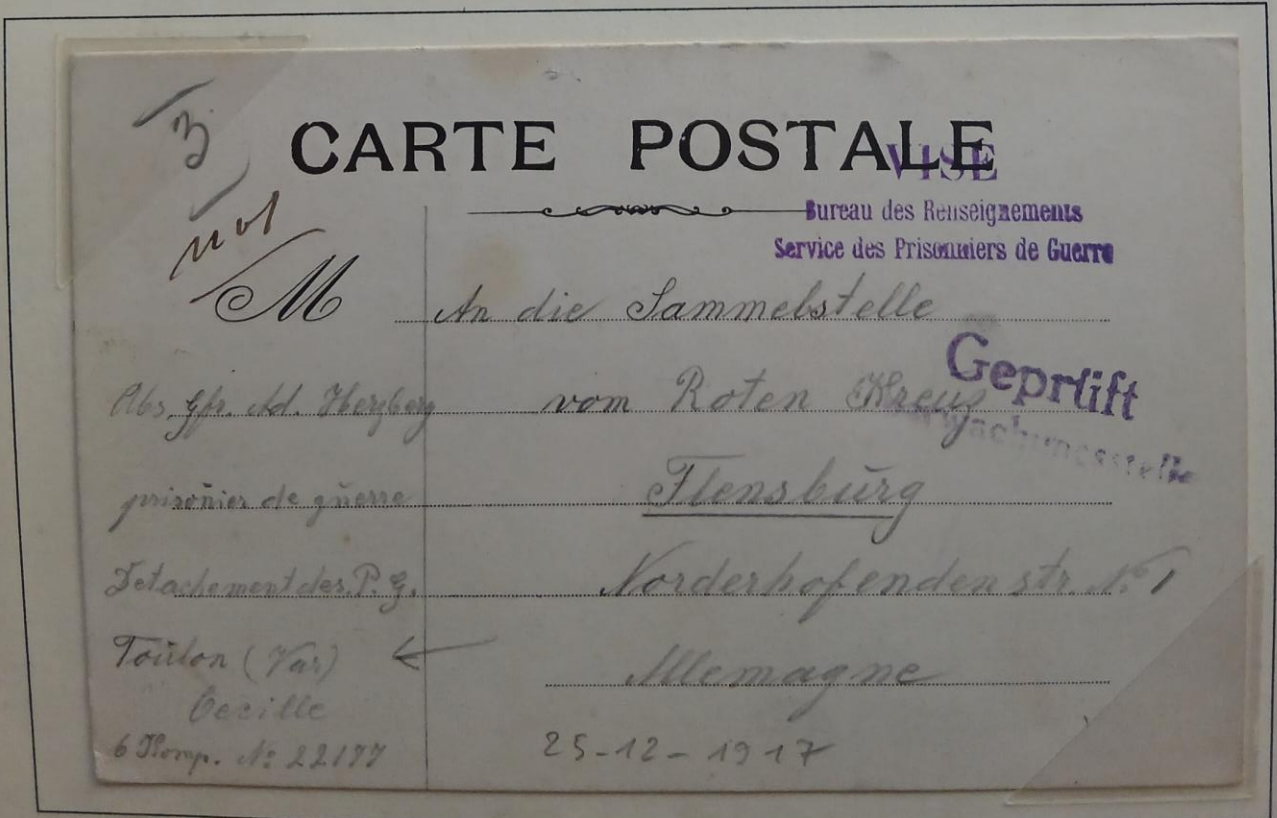 3
CARTE POSTALE
VISÉ
Bureau des Renseignements
Service des Prisonniers de Guerre
M An die Sammelstelle
vom Roten Kreuz
Flensbürg
Norderhofendenstr. No. 1
Allemagne
25-12-1917
Geprüft
Abs. Gfr. Ad. Herzberg
prisoñier de gŭerre
Detachement des P. G.
Toŭlon (Var)
6 Komp. No 22177